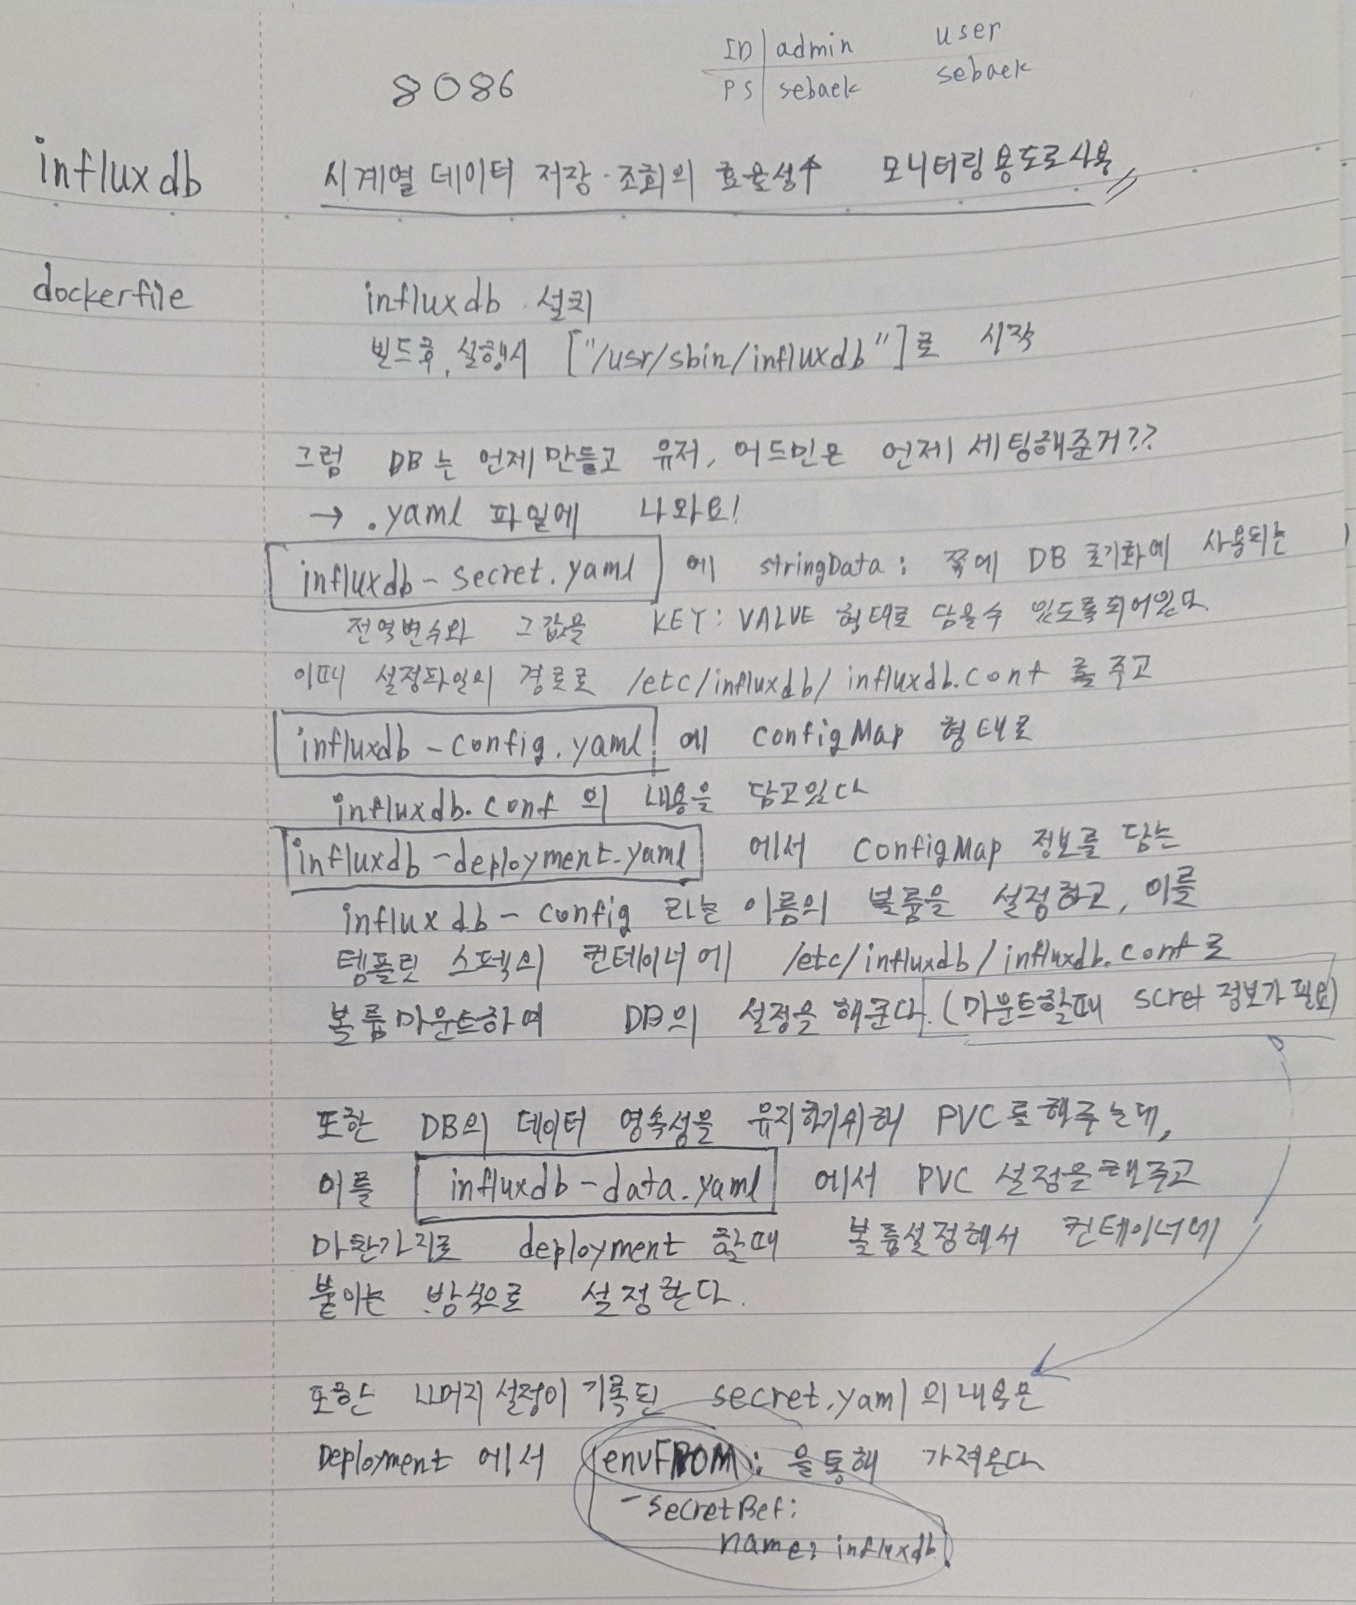 ID | admin user
PS | sebaek sebaek
8086
influxdb 시계열 데이터 저장·조회의 효율성↑ 모니터링용도로사용
dockerfile influxdb 설치
빌드후, 실행시 ["/usr/sbin/influxdb"]로 시작
그럼 DB는 언제 만들고 유저, 어드민은 언제 세팅해준거??
→ .yaml 파일에 나와요!
influxdb-secret.yaml 에 stringData: 쪽에 DB 초기화에 사용되는
전역변수와 그값을 KEY: VALVE 형태로 담을수 있도록되어있다
이때 설정파일의 경로로 /etc/influxdb/influxdb.conf 를 주고
influxdb-config.yaml 에 configMap 형태로
influxdb.conf 의 내용을 담고있다
influxdb-deployment.yaml 에서 configMap 정보를 담는
influxdb-config 라는 이름의 볼륨을 설정하고, 이를
템플릿 스펙의 컨테이너에 /etc/influxdb/influxdb.conf로
볼륨마운트하여 DB의 설정을 해준다. (마운트할때 scret 정보가 필요)
또한 DB의 데이터 영속성을 유지하기위해 PVC로해주는데,
이를 influxdb-data.yaml 에서 PVC 설정을해주고
마찬가지로 deployment 할때 볼륨설정해서 컨테이너에
붙이는 방식으로 설정한다.
또한 나머지 설정이 기록된 secret.yaml의 내용은
Deployment 에서 envFROM: 을통해 가져온다
-secretRef:
name: influxdb